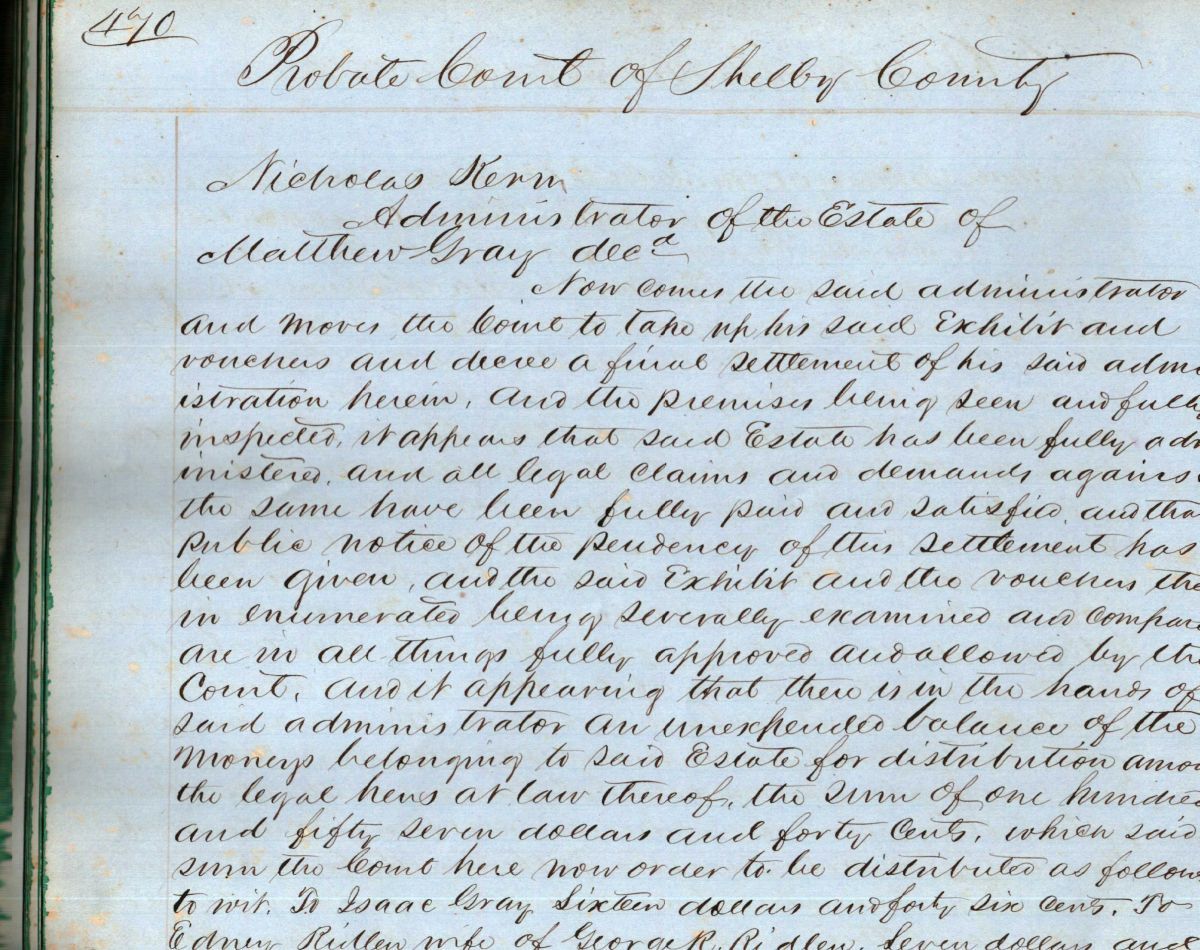 470
Probate Court of Shelby County
Nicholas Kern
Administrator of the Estate of
Matthew Gray decd
Now comes the said administrator
and moves the Court to take up his said Exhibit and
vouchers and decree a final settlement of his said admi
istration herein, And the premises being seen and fully
inspected, it appears that said Estate has been fully adm
inistered, and all legal claims and demands agains
the same have been fully paid and satisfied, and tha
public notice of the pendency of this settlement has
been given, and the said Exhibit and the vouchers the
in enumerated being severally examined and compare
are in all things fully approved and allowed by the
Court, And it appearing that there is in the hands of
said administrator an unexpended balance of the
moneys belonging to said Estate for distribution amon
the legal heirs at law thereof, the sum of one hundred
and fifty seven dollars and forty cents, which said
sum the Court here now order to be distributed as follow
to wit, To Isaac Gray Sixteen dollars and forty six cents, To
Edney Ridlen wife of George R. Ridlen, Seven dollars and